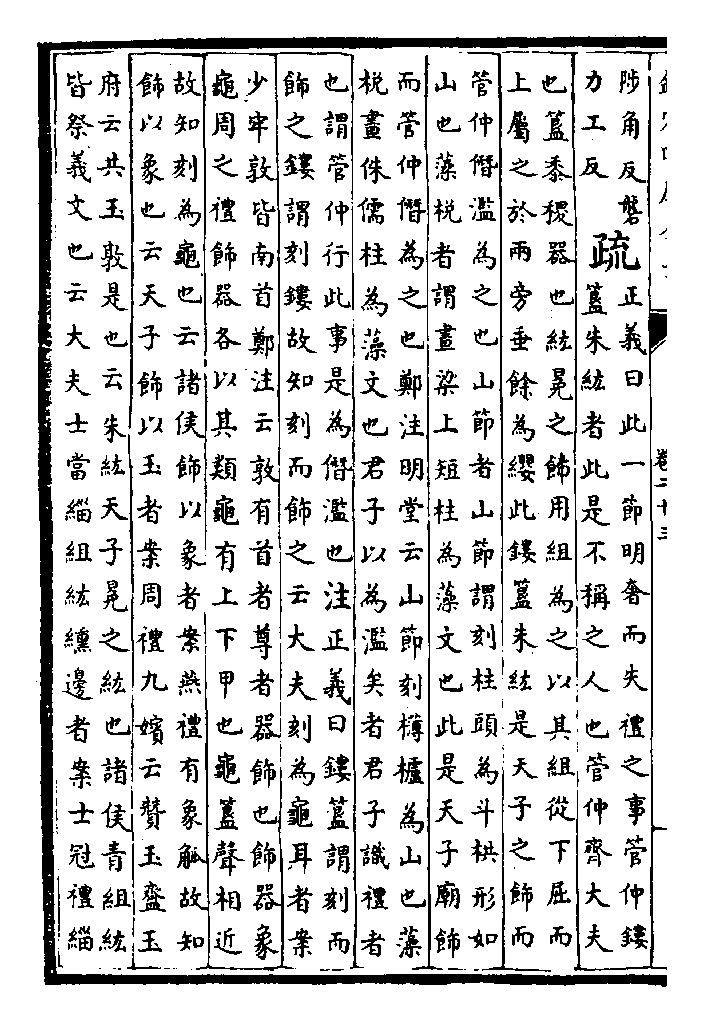 卷二十三
陟角反磐
力工反
疏
正義曰此一節明奢而失禮之事管仲鏤
簋朱紘者此是不稱之人也管仲齊大夫
也簋黍稷器也紘冕之飾用組為之以其組從下屈而
上屬之於兩旁垂餘為纓此鏤簋朱紘是天子之飾而
管仲僭濫為之也山節者山節謂刻柱頭為斗栱形如
山也藻梲者謂畫梁上短柱為藻文也此是天子廟飾
而管仲僭為之也鄭注明堂云山節刻欂櫨為山也藻
梲畫侏儒柱為藻文也君子以為濫矣者君子識禮者
也謂管仲行此事是為僭濫也注正義曰鏤簋謂刻而
飾之鏤謂刻鏤故知刻而飾之云大夫刻為龜耳者案
少牢敦皆南首鄭注云敦有首者尊者器飾也飾器象
龜周之禮飾器各以其類龜有上下甲也龜簋聲相近
故知刻為龜也云諸侯飾以象者案燕禮有象觚故知
飾以象也云天子飾以玉者案周禮九嬪云贊玉齍玉
府云共玉敦是也云朱紘天子冕之紘也諸侯青組紘
皆祭義文也云大夫士當緇組紘纁邊者案士冠禮緇